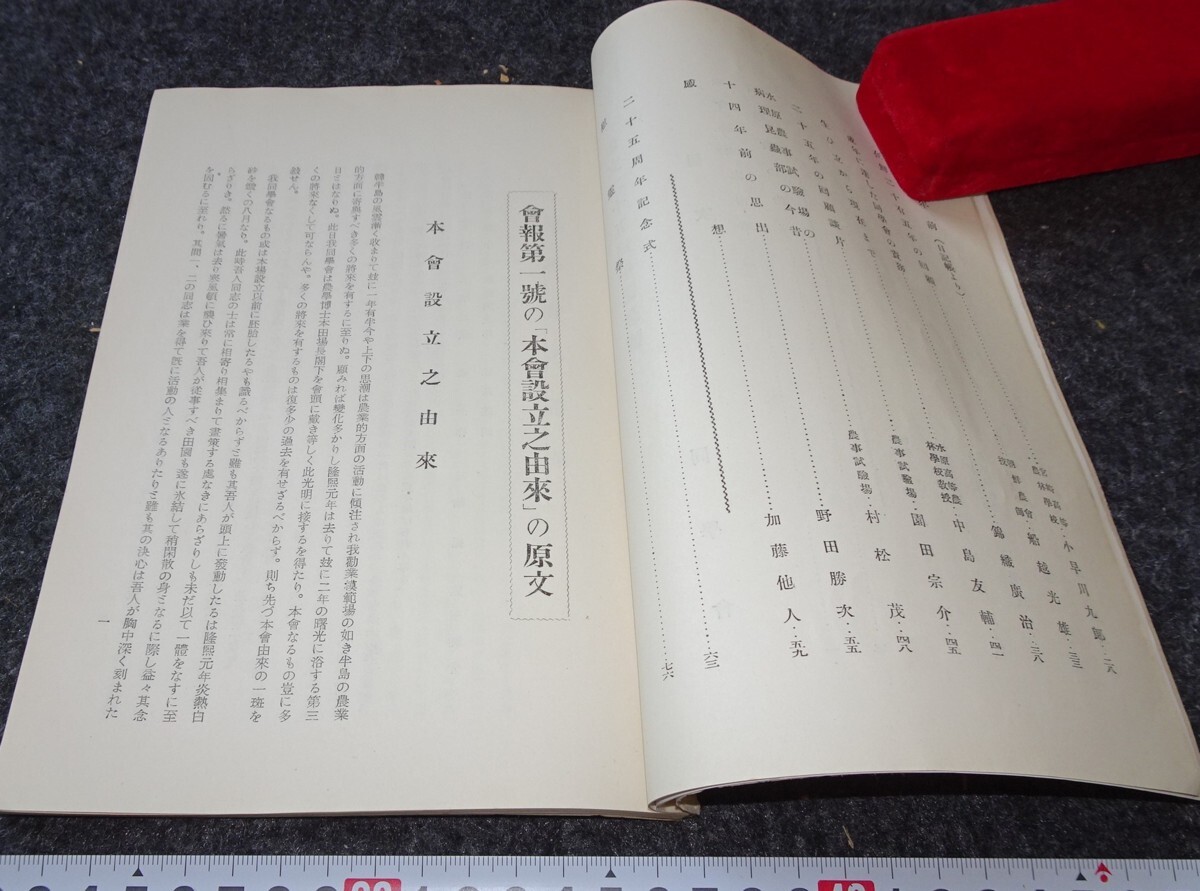 前(日記帳より)
小早川九郎・二八
船越光雄・三三
錦織廣治・三八
生ひ立から現在まで
水原高等農林學校教授
中島友輔・四一
二十五年の回顧談片
農事試驗場・園田宗介・四五
水原農事試驗場の今昔
農事試驗場・村松茂・四八
病理昆蟲部の
野田勝次・五五
十四年前の思出
加藤他人・五九
感想
六三
二十五周年記念式
七六
會報第一號の「本會設立之由來」の原文
本會設立之由來
韓半島の風雲漸く收まりて玆に一年有半今や上下の思潮は農業的方面の活動に傾注され我勸業模範場の如き半島の農業
的方面に寄與すべき多くの將來を有するに至りぬ。顧みれば變化多かりし隆熙元年は去りて玆に二年の曙光に浴する第三
日ミはなりぬ。此日我同學會は農學博士本田場長閣下を會頭に戴き等しく此光明に接するを得たり。本會なるもの豈に多
くの將來なくして可ならんや。多くの將來を有するものは復多少の過去を有せざるべからず。則ち先づ本會由來の一斑を
錄せん。
我同學會なるもの或は本場設立以前に胚胎したるやも識るべからずミ雖も其吾人が頭上に發動したるは隆熙元年炎熱白
砂を燬くの八月なり。此時吾人同志の士は常に相寄り相集まりて畫策する處なきにあらざりしも未だ以て一體をなすに至
らざりき。然るに暑氣は去り寒風頓に襲ひ來りて吾人が從事すべき田園も遂に氷結して稍閑散の身ミなるに際し益々其念
を固むるに至れり。其間一、二の同志は業を得て旣に活動の人ミなるありたりミ雖も其の決心は吾人が胸中深く刻まれた
一